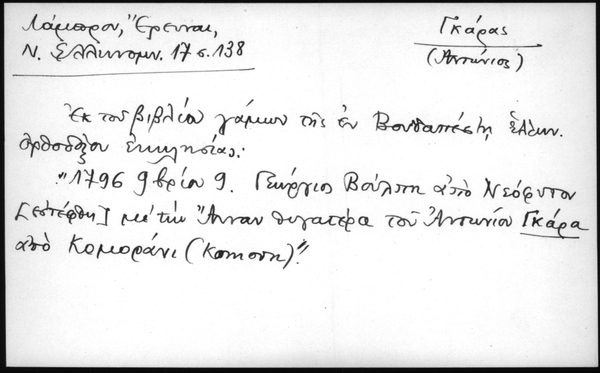 Λάμπρου, Ἔρευναι,
Ν. Ἑλληνομν. 17 σ. 138
Γκάρας
(Ἀντώνιος)
Ἐκ τοῦ βιβλίου γάμων τῆς ἐν Βουδαπέστῃ ἑλλην.
ὀρθοδόξου ἐκκλησίας:
"1796 9βρίου 9. Γεώργιος Βούλπη ἀπὸ Νεόφυτον
με τὴν Ἄνναν θυγατέρα τοῦ Ἀντωνίου Γκάρα
ἀπὸ Κομοράνι (Κόποση)"